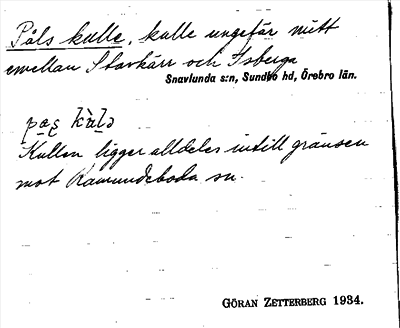 Påls kulle, kulle ungefär mitt
emellan Starkärr och Isberga
Snavlunda s:n, Sundbo hd, Örebro län.
Kullen ligger alldeles intill gränsen
mot Ramundeboda sn.
GÖRAN ZETTERBERG 1934.